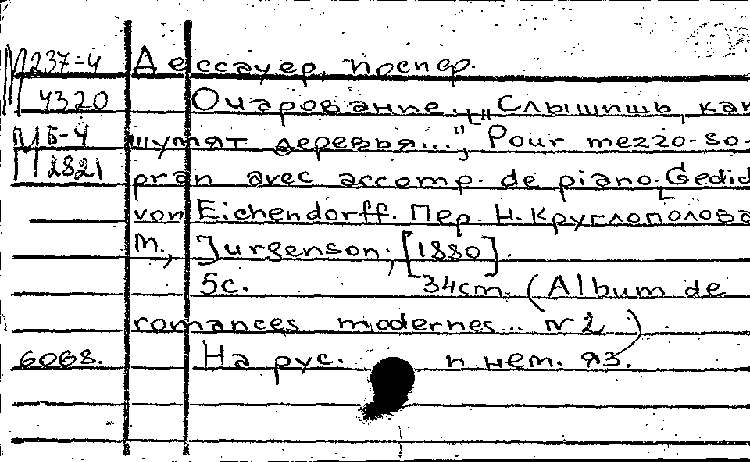 М237-4 Дессауер, Проспер.
4320 Очарование. „Слышишь, как
МБ-4 шумят деревья...", Pour mezzo-so-
1821 pran avec accomp. de piano. Gedid
von Eichendorff. Пер. Н. Круглополова
M., Jurgenson, [1880].
5с. 34cm. (Album de
romances modernes. N2)
6068. На рус. и нем. яз.